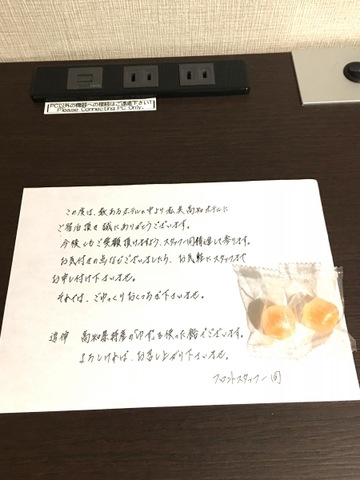 PC以外の機器への接続はご遠慮下さい!
Please Connecting PC Only.
この度は、数あるホテルの中より 高知ホテルに
ご宿泊頂き誠にありがとうございます。
今後ともご愛顧頂けますよう、スタッフ一同精進して参ります。
お気付きの点などございましたら、お気軽にスタッフまで
お申し付け下さいませ。
それでは、ごゆっくりおくつろぎ下さいませ。
追伸 高知県特産の「ゆず」を使った飴でございます。
よろしければ、お召し上がり下さいませ。
フロントスタッフ一同